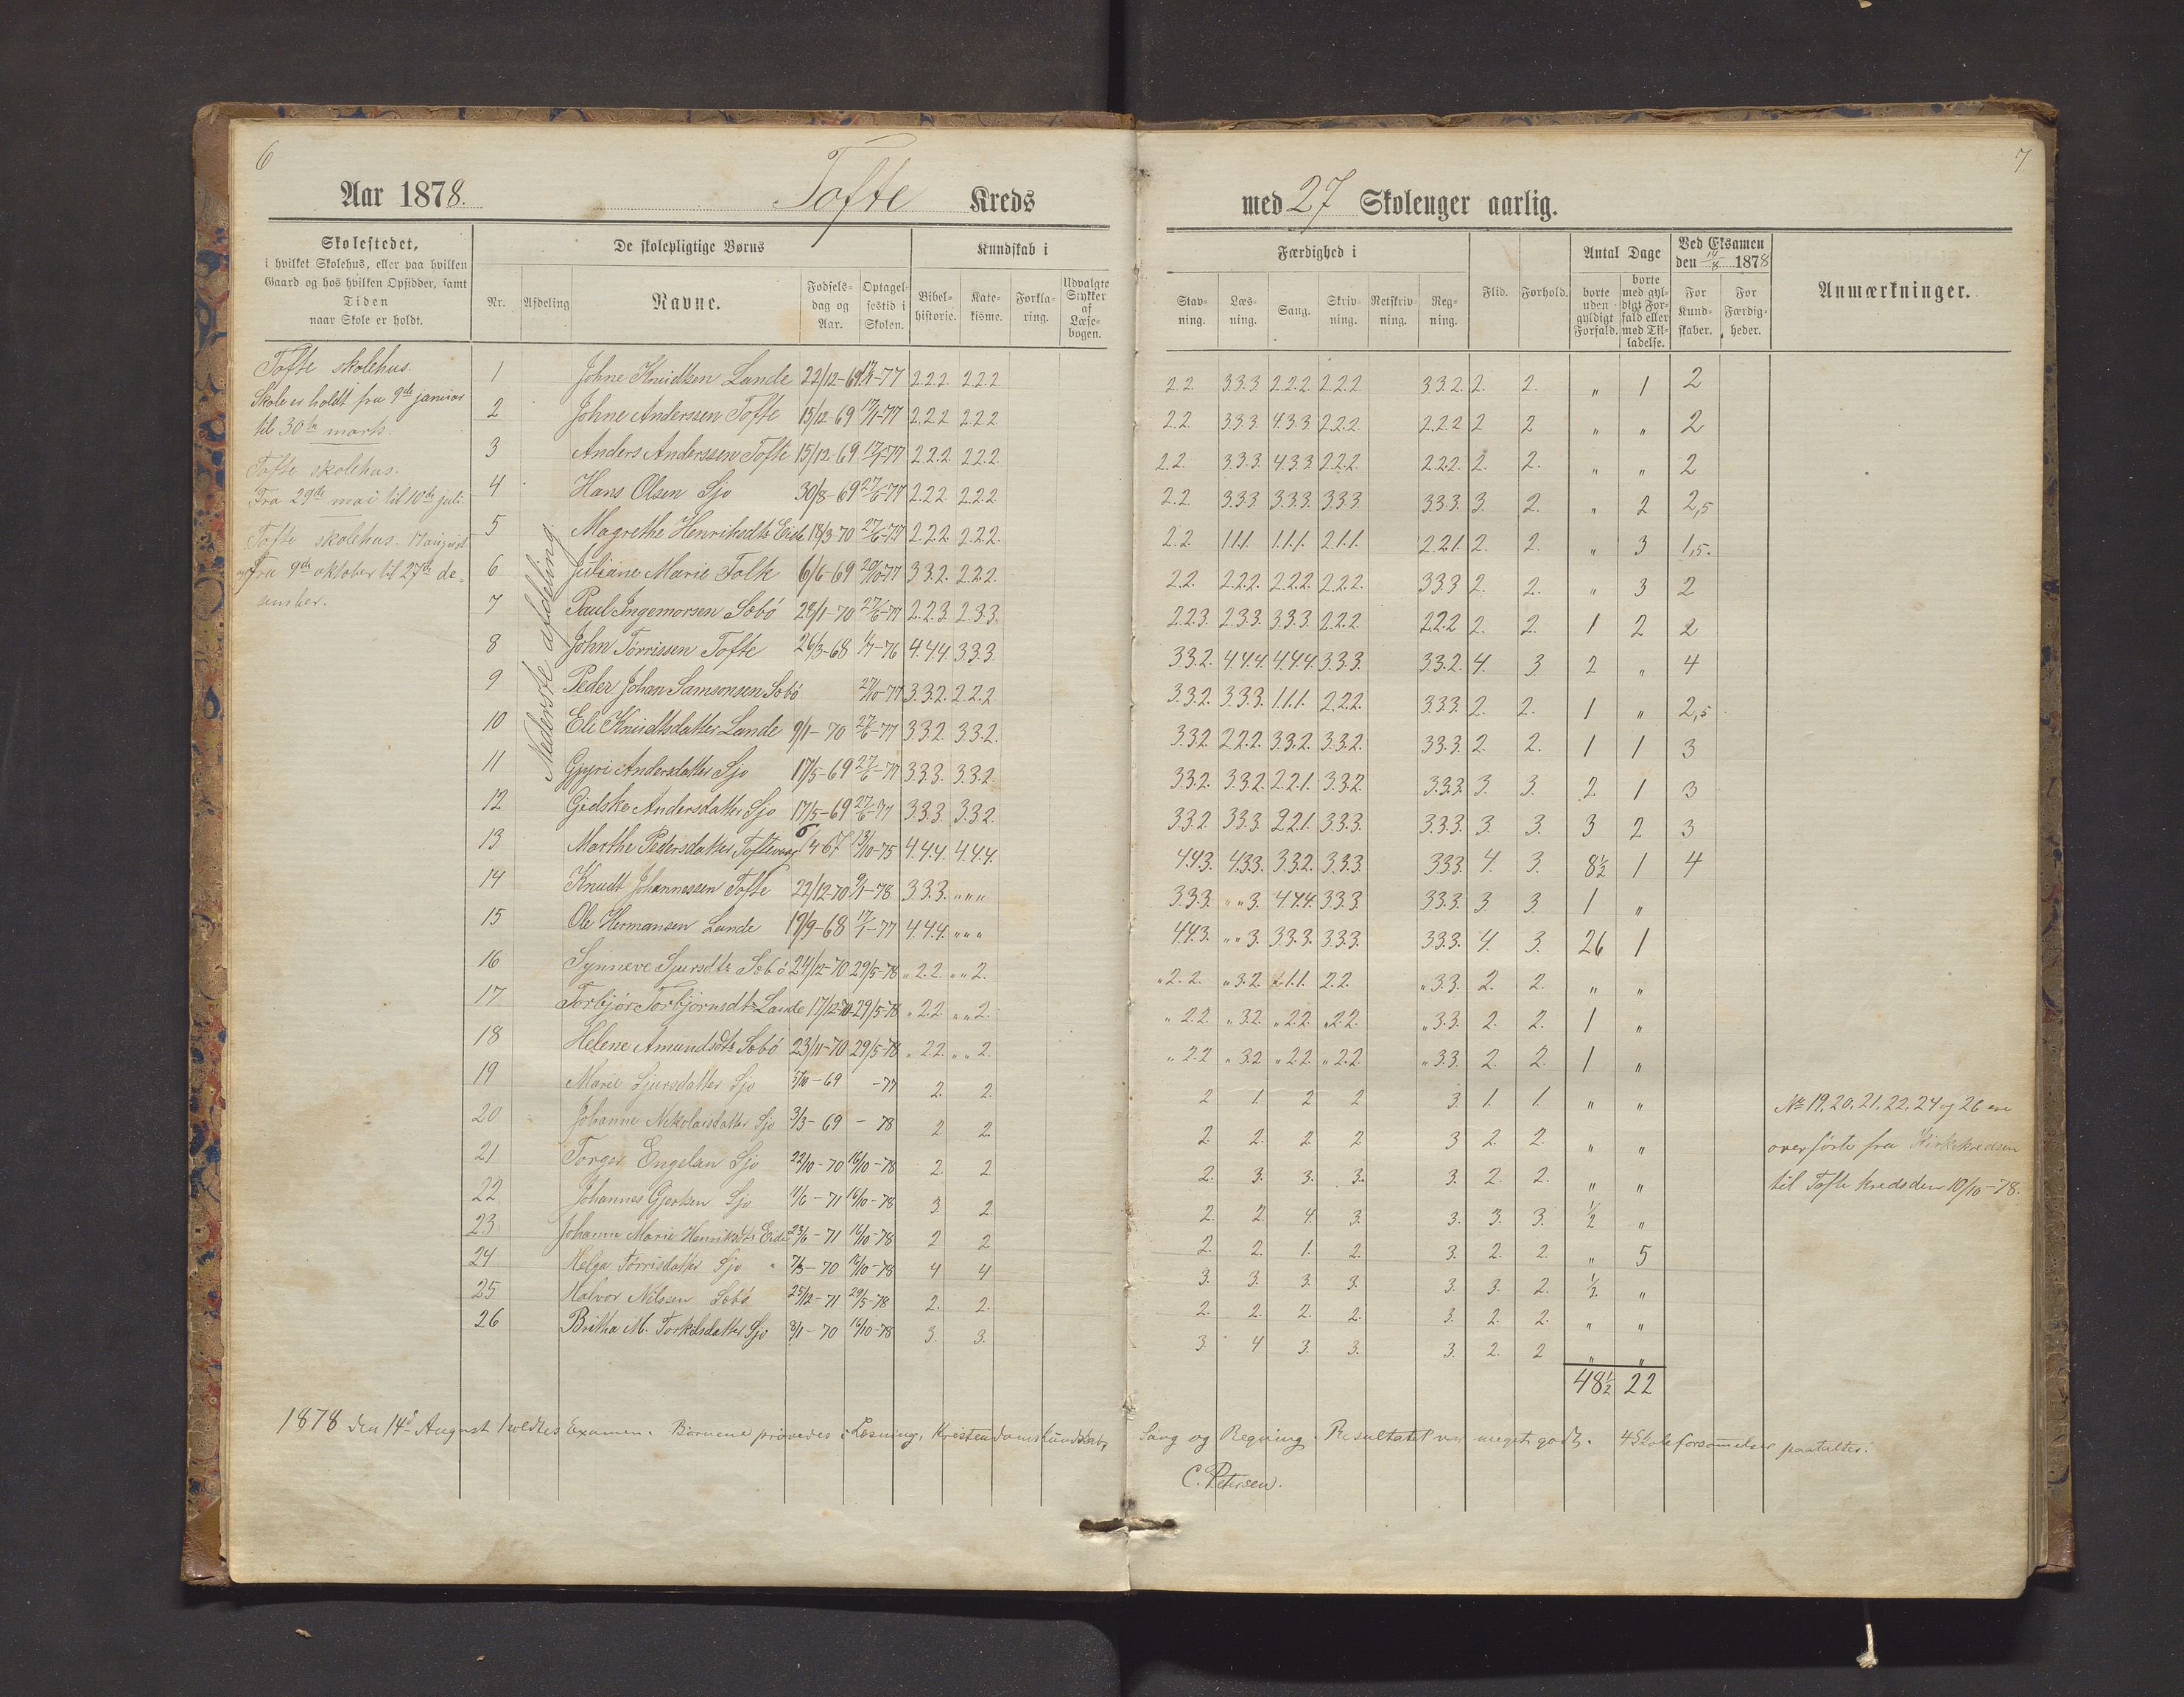 6
Aar 1878.
Tofte Kreds
Skolestedet,
i hvilket Skolehus, eller paa hvilken
Gaard og hos hvilken Opsidder, samt
Tiden
naar Skole er holdt.
De skolepligtige Børns
Kundskab i
Nr.
Afdeling
Navne.
Fødsels-
dag og
Aar.
Optagel-
sestid i
Skolen.
Bibel-
historie.
Kate-
kisme.
Forkla-
ring.
Udvalgte
Stykker
af
Læse-
bogen.
Tofte skolehus.
Skole er holdt fra 9de januar
til 30te marts.
Tofte skolehus.
Fra 29de mai til 10de juli.
Tofte skolehus. 17 august
og fra 9de oktober til 27de de-
sember.
Nederste afdeling.
1 Johne Knudtsen Lunde 22/12-69 17/1-77 2.2.2. 2.2.2
2 Johne Anderssen Tofte 15/12-69 17/1-77 2.2.2 2.2.2
3 Anders Anderssen Tofte 15/12-69 17/1-77 2.2.2. 2.2.2.
4 Hans Olsen Sjo 30/8-69 27/6-77 2.2.2. 2.2.2
5 Magrethe Henriksdtr Eide 18/3-70 27/6-77 2.2.2. 2.2.2.
6 Juliane Marie Folk 6/6-69 20/10-77 3.3.2. 2.2.2.
7 Paul Ingemorsen Søbø 28/1-70 27/6-77 2.2.3. 2.3.3.
8 John Tørrissen Tofte 26/3-68 1/7-76 4.4.4. 3.3.3.
9 Peder Johan Samsonsen Søbø 27/10-77 3.3.2. 2.2.2
10 Eli Knudtsdatter Lunde 9/1-70 27/6-77 3.3.2. 3.3.2.
11 Gjyri Andersdatter Sjo 17/5-69 27/6-77 3.3.3. 3.3.2.
12 Gidske Andersdatter Sjo 17/5-69 27/6-77 3.3.3. 3.3.2.
13 Marthe Pedersdatter Toftevaag 13/10-75 4.4.4. 4.4.4.
14 Knudt Johannessen Tofte 22/12-70 9/1-78 3.3.3. " " "
15 Ole Hermansen Lunde 19/9-68 17/1-77 4.4.4. " " "
16 Synneve Sjursdtr Søbø 24/12-70 29/5-78 " 2.2. " " 2.
17 Torbjør Torbjørnsdtr Lunde 17/12-70 29/5-78 " 2.2. " " 2.
18 Helene Amundsdtr Søbø 23/11-70 29/5-78 " 2.2. " " 2.
19 Marie Sjursdatter Sjo 5/10-69 -77 2. 2.
20 Johanne Nikolaisdatter Sjo 3/3-69 -78 2 2.
21 Torger Engelsen Sjo 22/10-70 16/10-78 2. 2
22 Johannes Gjertsen Sjo 11/6-71 16/10-78 3. 2.
23. Johanne Marie Henriksdtr Eide 23/6-71 16/10-78 2 2
24 Helga Tørrisdatter Sjo 7/3-70 16/10-78 4 4
25 Halvor Nilssen Søbø 25/12-71 29/5-78 2. 2.
26 Britha M. Torkilsdatter Sjo 8/1-70 16/10-78 3. 3.
1878 den 14d August holdtes Examen. Børnene prøvedes i Læsning, Kristendomskundskab,
7
med 27 Skoleuger aarlig.
Færdighed i
Flid.
Forhold.
Antal Dage
Ved Eksamen
den 14/8 1878
Anmærkninger.
Stav-
ning.
Læs-
ning.
Sang.
Skriv-
ning.
Retskriv-
ning.
Reg-
ning.
borte
uden
gyldigt
Forfald.
borte
med gyl-
digt For-
fald eller
med Til-
ladelse.
For
Kund-
skaber.
For
Færdig-
heder.
2.2. 3.3.3. 2.2.2. 2.2.2. 3.3.2. 2. 2. " 1 2
2.2. 3.3.3. 4.3.3. 2.2.2. 2.2.2 2 2 " " 2
2.2. 3.3.3. 4.3.3. 2.2.2. 2.2.2. 2. 2. " " 2
2.2. 3.3.3 3.3.3. 3.3.3. 3.3.3. 3. 2. " 2 2,5
2.2. 1.1.1. 1.1.1. 2.1.1. 2.2.1. 2. 2. " 3 1,5.
2.2. 2.2.2. 2.2.2. 2.2.2. 3.3.3 2. 2. " 3 2
2.2.3. 2.3.3. 3.3.3. 2.2.2. 2.2.2 2. 2. 1 2 2
3.3.2. 4.4.4. 4.4.4. 3.3.3. 3.3.2. 4. 3. 2 " 4
3.3.2. 3.3.3. 1.1.1. 2.2.2. 3.3.3. 2. 2. 1 " 2,5
3.3.2. 2.2.2. 3.3.2. 3.3.2. 3.3.3. 2. 2. 1 1 3
3.3.2. 3.3.2. 2.2.1. 3.3.2. 3.3.3. 3. 3. 2 1 3
3.3.2. 3.3.3. 2.2.1. 3.3.3. 3.3.3. 3. 3. 3 2 3
4.4.3. 4.3.3. 3.3.2. 3.3.3. 3.3.3. 4. 3. 8½ 1 4
3.3.3. " " 3. 4.4.4. 3.3.3. 3.3.3. 3. 3. 1 "
4.4.3. " " 3. 3.3.3. 3.3.3. 3.3.3. 4. 3. 26 1
" 2.2. " 3.2. 2.1.1. 2.2. " 3.3. 2. 2. " "
" 2.2. " 3.2. " 2.2. " 2.2. " 3.3. 2. 2. 1 "
" 2.2 " 3.2 " 2.2. " 2.2 " 3.3 2. 2. 1 "
2 1. 2 2 3. 1. 1. " "
2. 2. 2 2 3 2. 2. " "
2. 3. 3. 3. 3. 2. 2. " "
2. 2. 4. 3. 3. 3. 3. ½ "
2. 2. 1. 2. 3. 2. 2. " 5
3. 3. 3. 3. 3. 3. 2. ½ "
2. 2. 2. 2. 3. 2. 2. " "
3. 4 3. 3. 3. 2. 2 " "
48½ 22
No 19, 20, 21, 22, 24 og 26 ere
overførte fra Kirkekredsen
til Tofte kreds den 10/10-78.
Sang og Regning. Resultatet var meget godt. 4 Skoleforsømmelser paataltes.
C. Petersen.